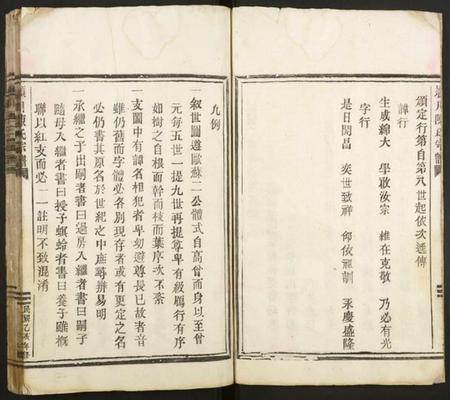 頒定行第自第八世起依次遞傳
諱行
生咸綿大 學啟汝宗 維在克敬 乃必有光
字行
是曰閎昌 奕世致祥 仰依祖訓 永慶盛隆
凡例
一叙世圖遵歐蘇二公體式自高曾而身以至曾
元每五世一提九世再提尊卑有級鴈行有序
如樹之自根而幹而枝而葉序次不紊
一支圖中有諱名相犯者卑幼遵尊長已故者音
雖仍舊而字體必各別現存者或有更定之名
必仍書其原名於世紀之中庶尋拼易明
一承繼之子出嗣者書曰過房入繼者書曰嗣子
隨母入繼者書曰授子螟蛉者書曰養子雖概
聯以紅支而必一一註明不致混淆
民國乙亥年修